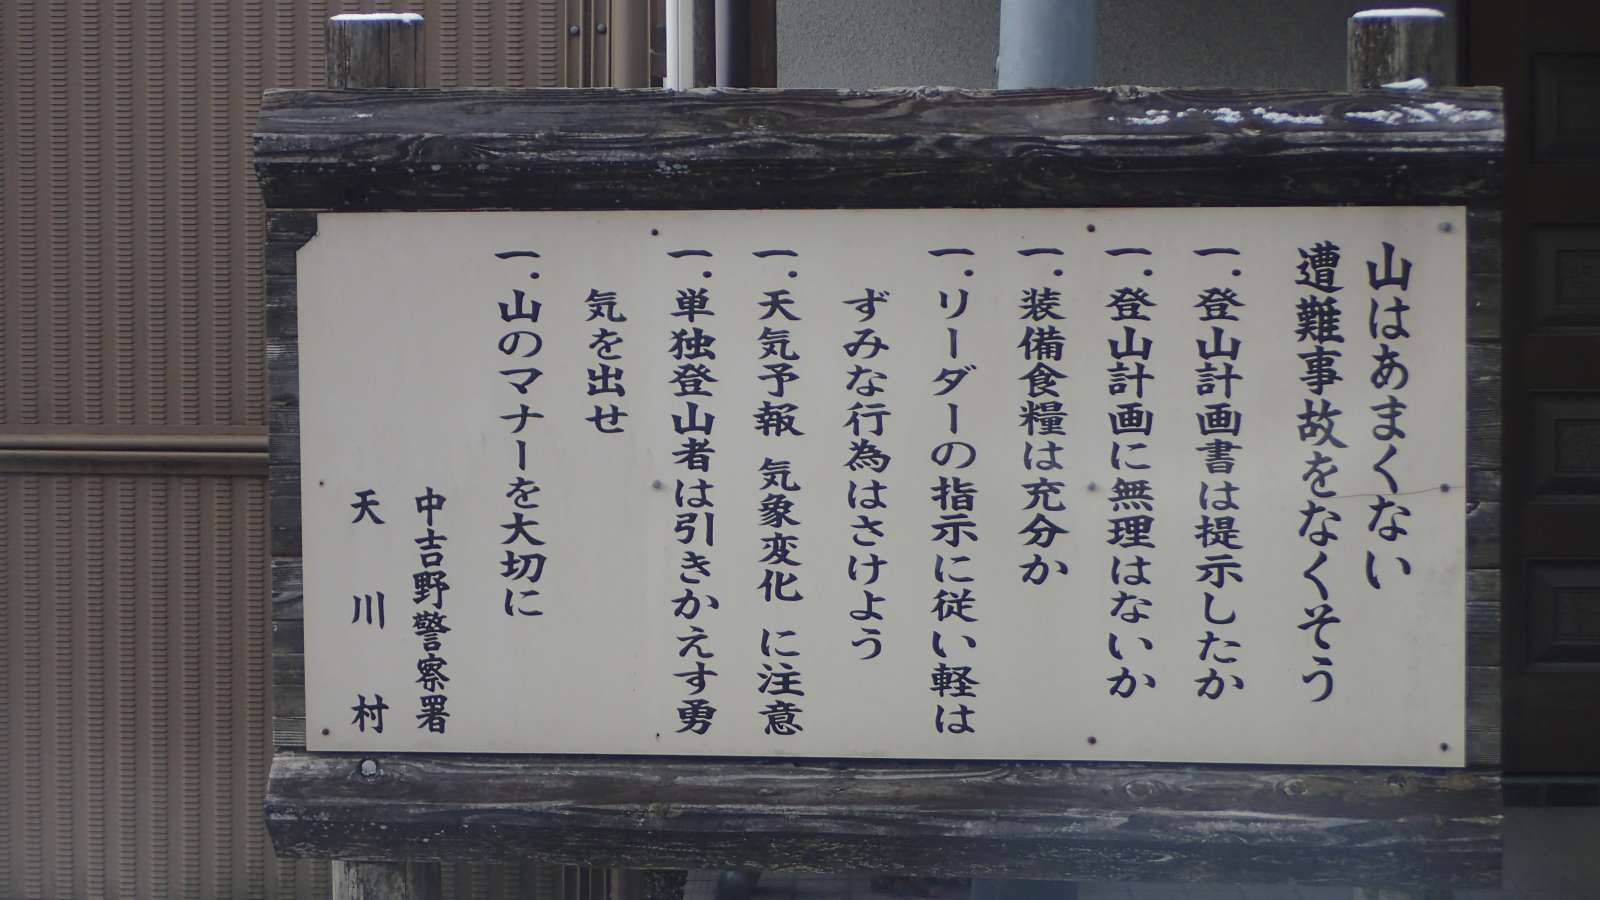 山はあまくない
遭難事故をなくそう
一.登山計画書は提示したか
一.登山計画に無理はないか
一.装備食糧は充分か
一.リーダーの指示に従い軽は
ずみな行為はさけよう
一.天気予報 気象変化 に注意
一.単独登山者は引きかえす勇
気を出せ
一.山のマナーを大切に
中吉野警察署
天川村